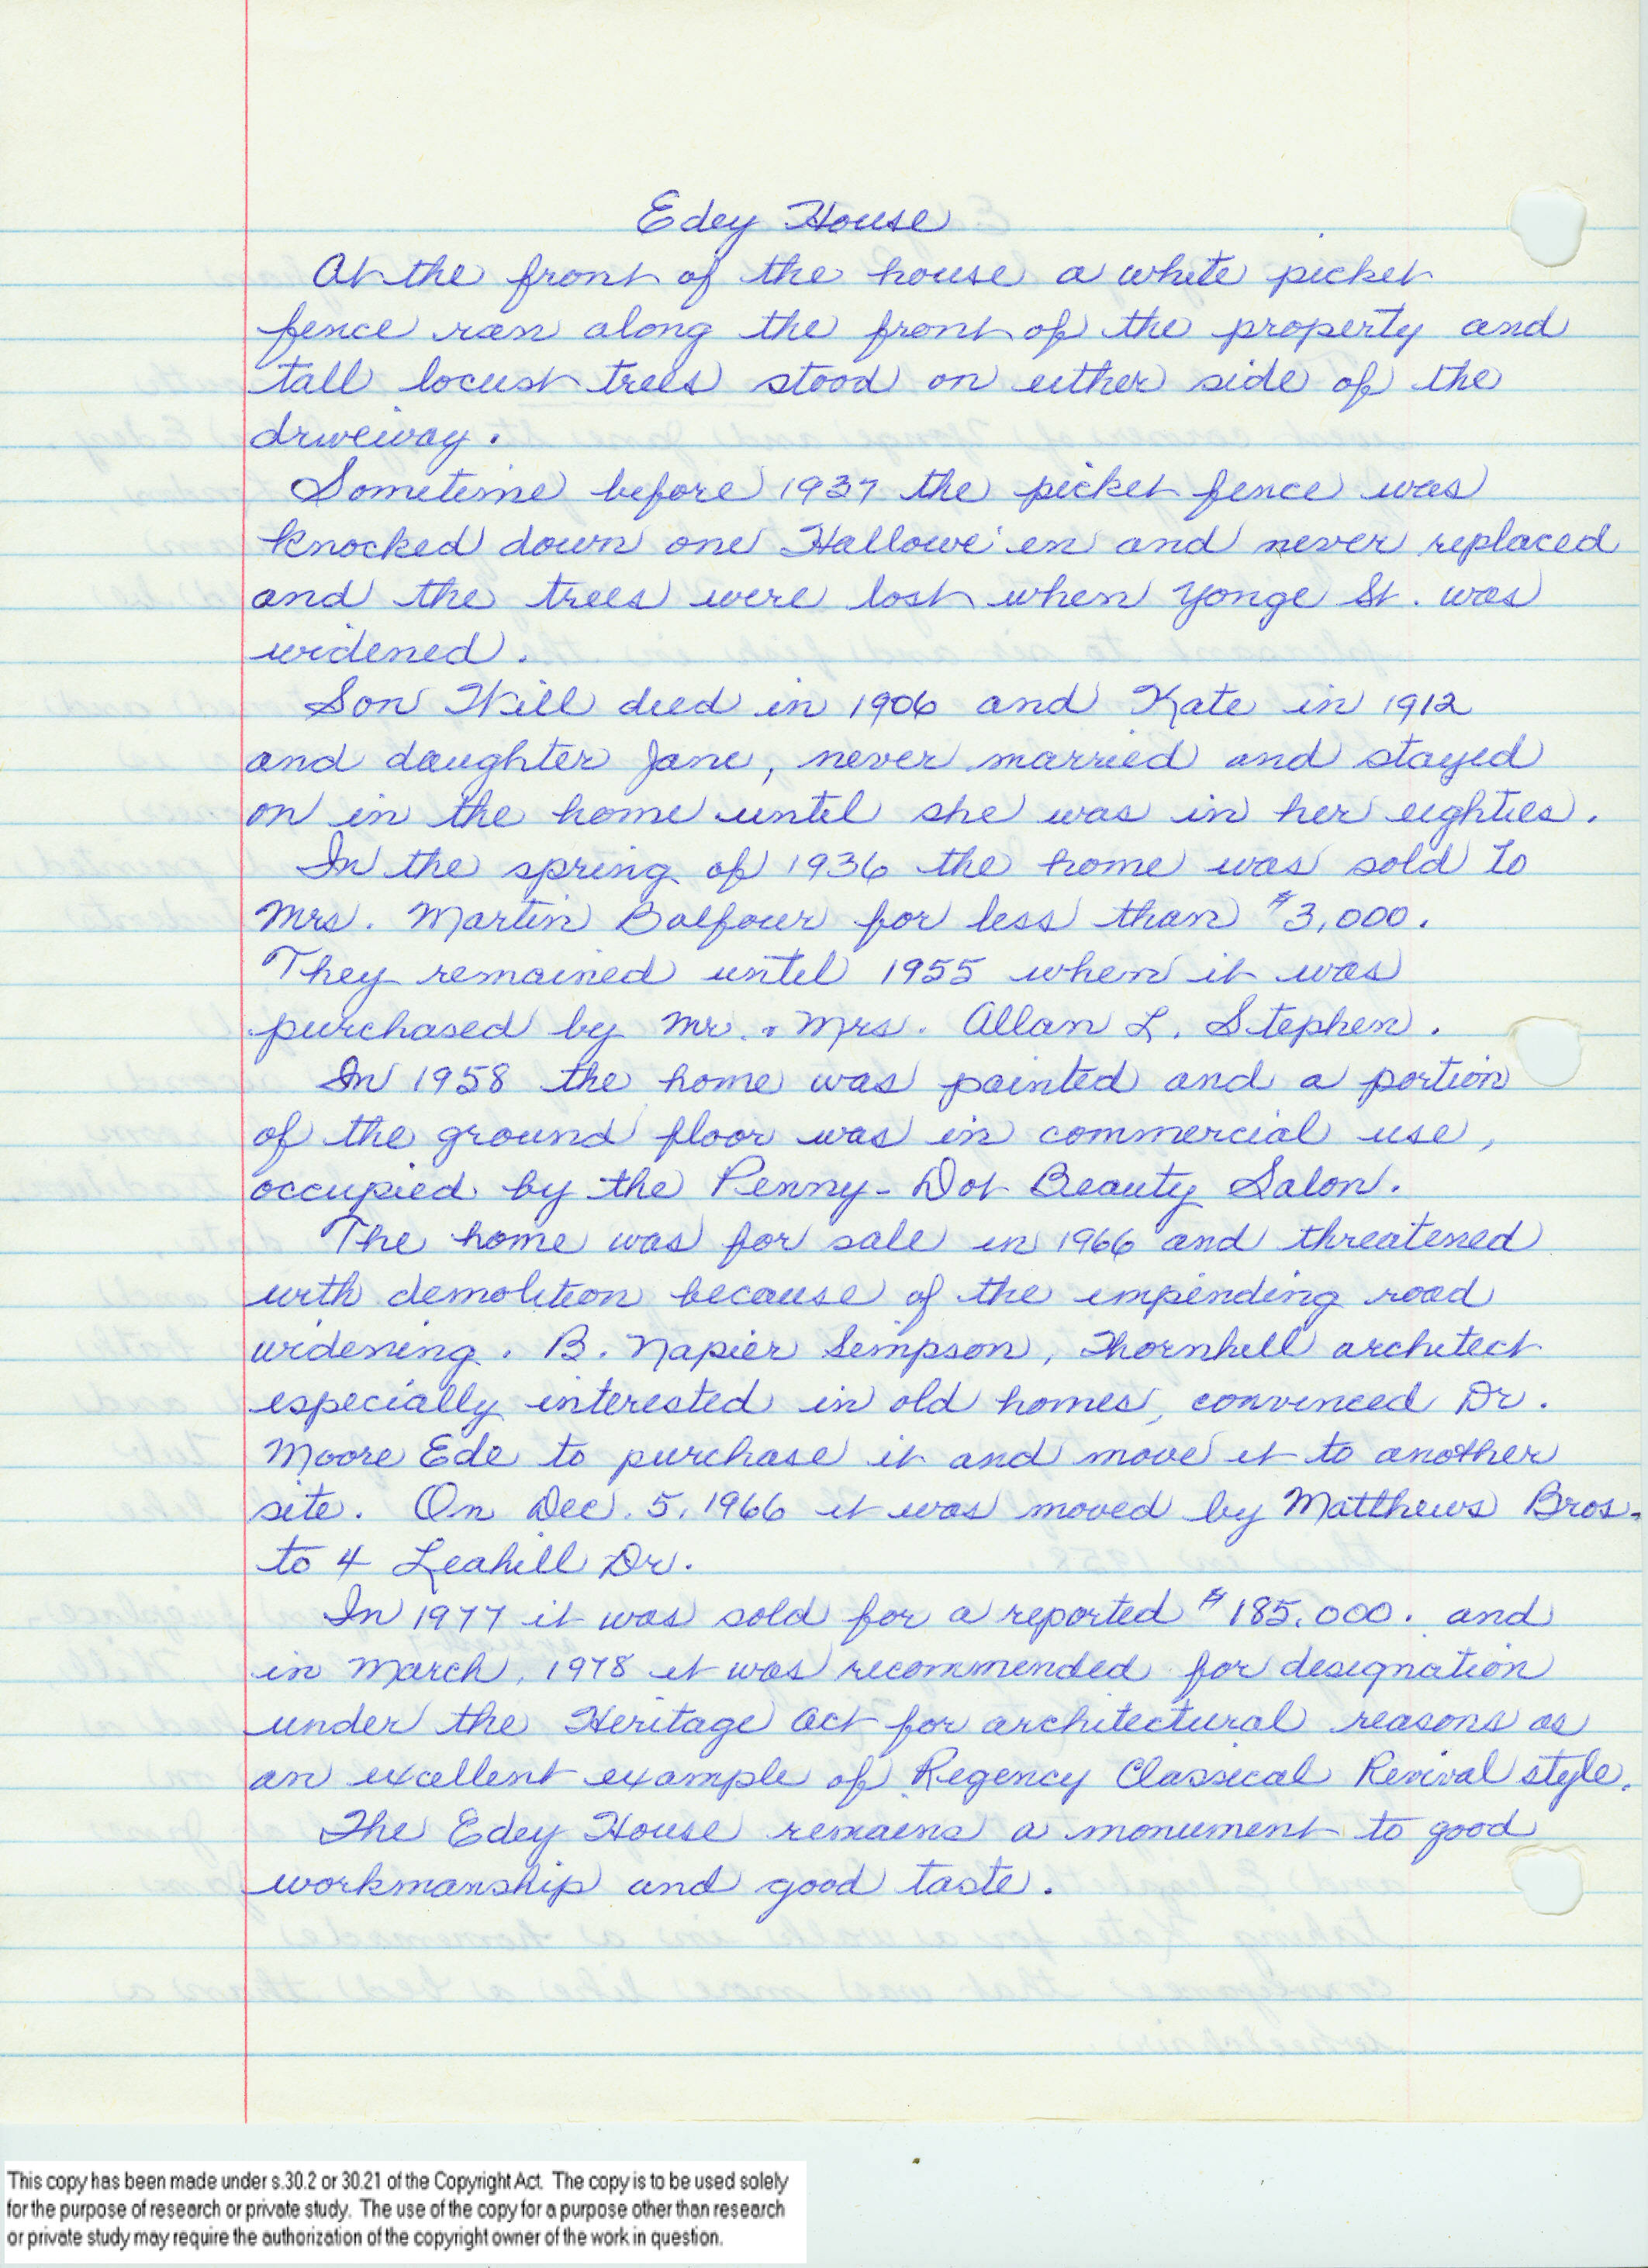 Edey House
At the front of the house a white picket
fence ran along the front of the property and
tall locust trees stood on either side of the
driveway.
Sometime before 1937 the picket fence was
knocked down one Hallowe'en and never replaced
and the trees were lost when Yonge St. was
widened.
Son Will died in 1906 and Kate in 1912
and daughter Jane, never married and stayed
on in the home until she was in her eighties.
In the spring of 1936 the home was sold to
Mrs. Martin Balfour for less than $3,000.
They remained until 1955 when it was
purchased by Mr. & Mrs. Allan L. Stephen.
In 1958 the home was painted and a portion
of the ground floor was in commercial use,
occupied by the Penny-Dot Beauty Salon.
The home was for sale in 1966 and threatened
with demolition because of the impending road
widening. B. Napier Simpson, Thornhill architect
especially interested in old homes, convinced Dr.
Moore Ede to purchase it and move it to another
site. On Dec. 5, 1966 it was moved by Matthews Bros.
to 4 Leahill Dr.
In 1977 it was sold for a reported $185,000. and
in March, 1978 it was recommended for designation
under the Heritage Act for architectural reasons as
an excellent example of Regency Classical Revival style.
The Edey House remains a monument to good
workmanship and good taste.
This copy has been made under s.30.2 or 30.21 of the Copyright Act. The copy is to be used solely
for the purpose of research or private study. The use of the copy for a purpose other than research
or private study may require the authorization of the copyright owner of the work in question.